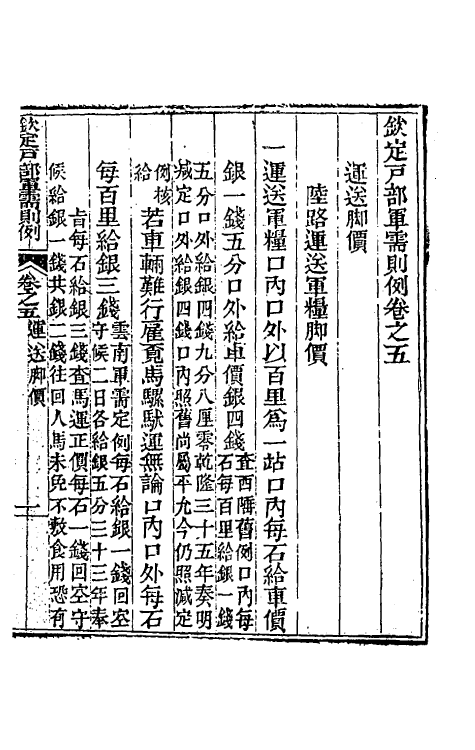 欽定戶部軍需則例卷之五
運送脚價
陸路運送軍糧脚價
一運送軍糧口內口外以百里爲一站口內每石給車價
銀一錢五分口外給車價銀四錢
查西陲舊例口內每
石每百里給銀一錢
五分口外給銀四錢九分八厘零乾隆三十五年奏明
減定口外給銀四錢口內照舊尚屬平允今仍照減定
例核
給
若車輛難行雇覔馬騾馱運無論口內口外每石
每百里給銀三錢
雲南軍需定例每石給銀一錢回空
守候二日各給銀五分三十三年奉
旨每石給銀三錢查馬運正價每石一錢回空守
候給銀一錢共銀二錢往回人馬未免不敷食用恐有
欽定戶部軍需則例
卷之五
運送脚價
一